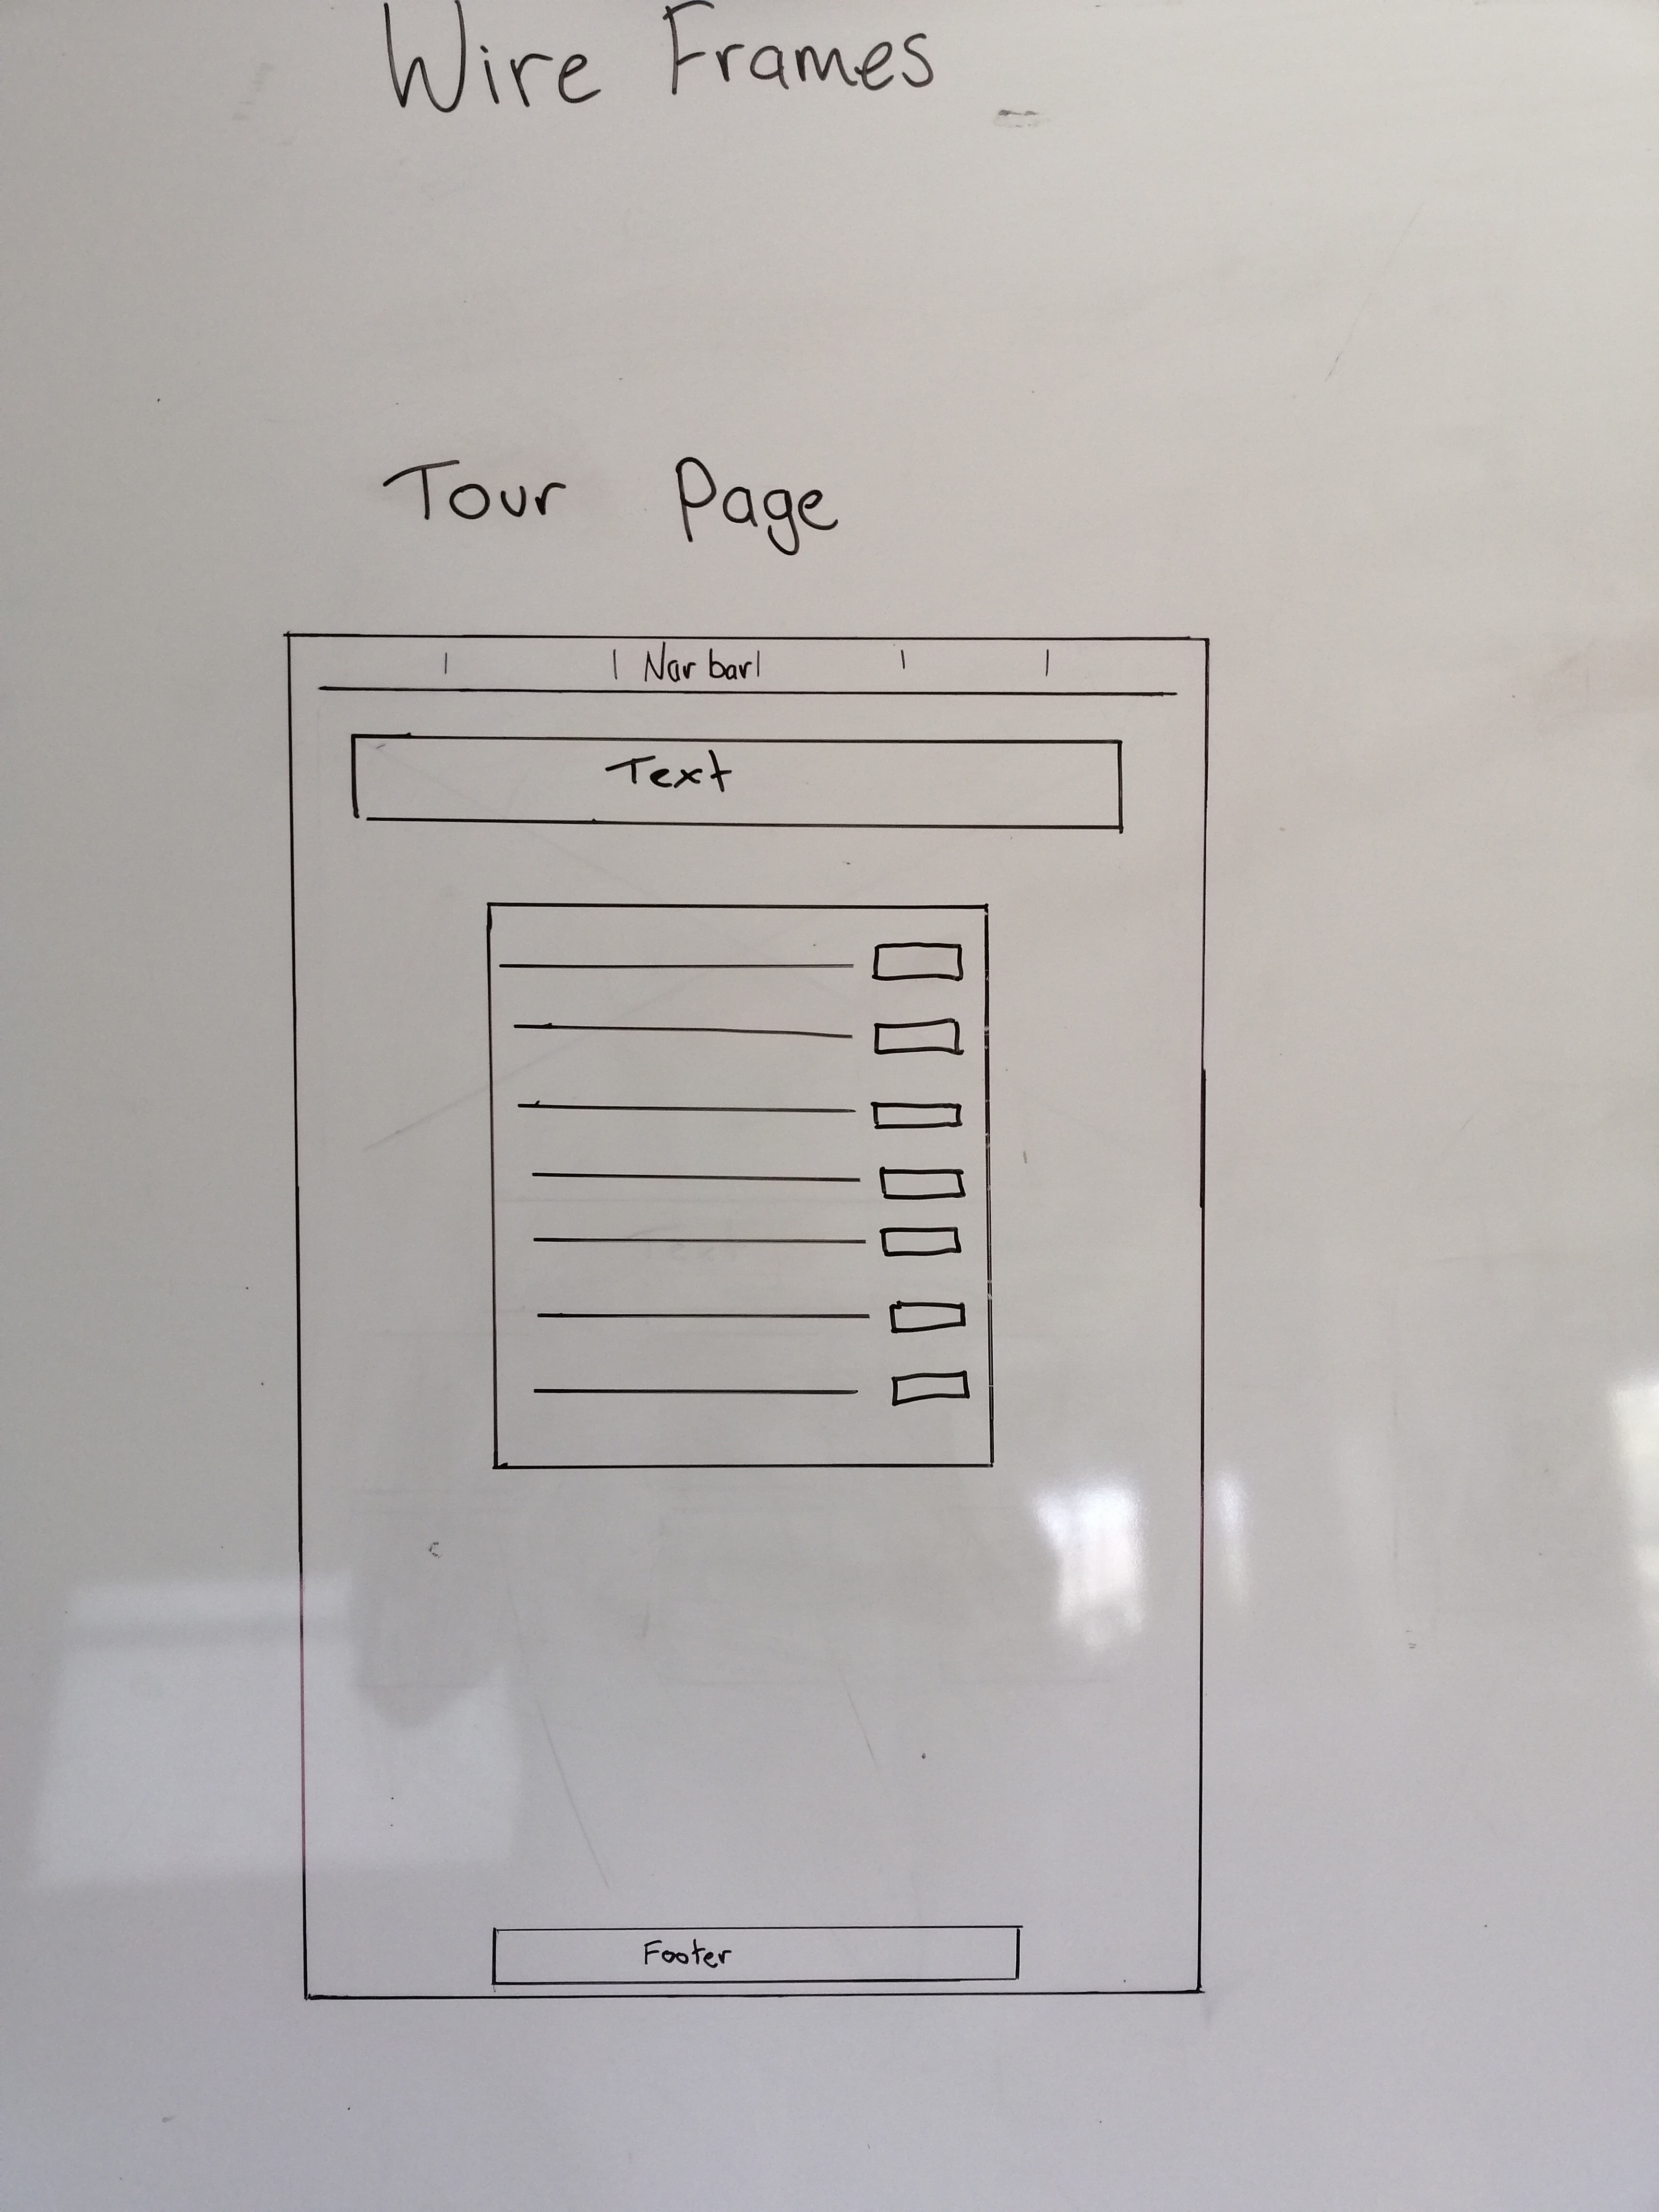 Wire Frames
Tour Page
Nav bar
Text
Footer